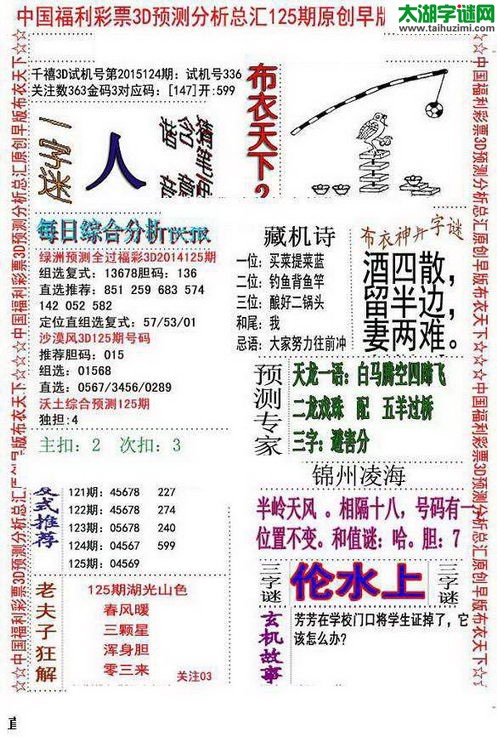 中国福利彩票3D预测分析总汇125期原创早版
太湖字谜网
www.taihuzimi.com
千禧3D试机号第2015124期：试机号336
关注数363金码3对应码：[147]开:599
布衣天下
人
每日综合分析快报
绿洲预测全过福彩3D2014125期
组选复式：13678胆码：136
直选推荐：851 259 683 574
142 052 582
定位直组选复式：57/53/01
沙漠风3D125期号码
推荐胆码：015
组选：01568
直选：0567/3456/0289
沃土综合预测125期
独担:4
主扣：2 次扣：3
藏机诗
一位：买菜提菜蓝
二位：钓鱼背鱼竿
三位：酿好二锅头
和尾：我
忌语：大家努力往前冲
布衣神算字谜
酒四散，
留半边，
妻两难。
预测专家
天龙一语：白马腾空四蹄飞
二龙戏珠 配 五羊过桥
三字：避害分
锦州凌海
半岭天风 。相隔十八，号码有一
位置不变。和值谜：哈。胆：7
复式推荐
121期：45678 227
122期：45678 274
123期：05678 240
124期：04567 599
125期：04569
老夫子狂解
125期湖光山色
春风暖
三颗星
浑身胆
零三来
关注03
三字谜
伦水上
三字谜
玄机故事
芳芳在学校门口将学生证掉了，它
该怎么办？
☆☆中国福利彩票3D预测分析总汇原创早版布衣天下☆☆
☆☆中国福利彩票3D预测分析总汇原创早版布衣天下☆☆